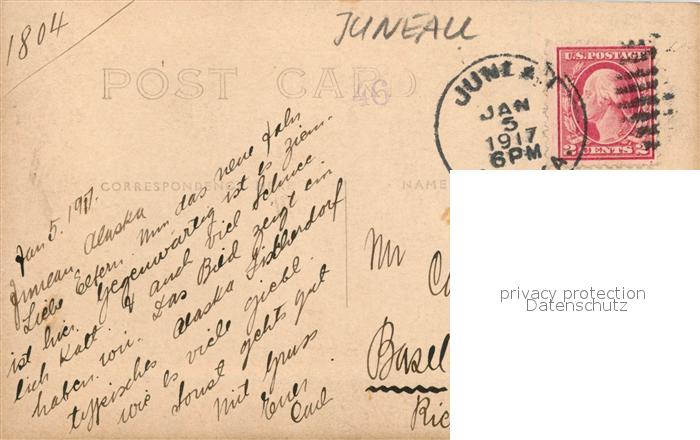 1804
JUNEAU
POST CARD
46
JUNEAU
JAN
5
1917
6PM
U.S. POSTAGE
2 CENTS 2
CORRESPONDENCE
NAME
Jan 5. 1917.
Juneau, Alaska
Liebe Eltern. Nun das neue Jahr
ist hier. Gegenwärtig ist es ziem-
lich kalt & auch viel Schnee
haben wir. Das Bild zeigt ein
typisches Alaska Fischerdorf
wie es viele giebt.
Sonst gehts gut
Mit Gruss
Euer
Carl
Mr C
Basel
Ric
privacy protection
Datenschutz